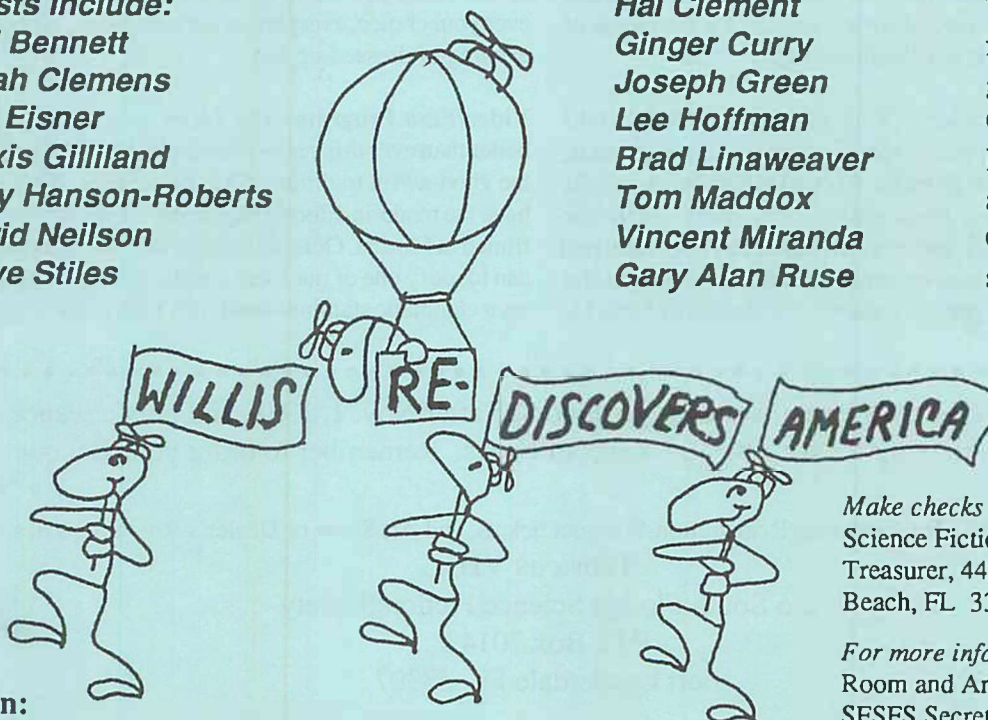 sts include:
Bennett
ah Clemens
Eisner
xis Gilliland
y Hanson-Roberts
vid Neilson
ve Stiles
Hal Clement
Ginger Curry
Joseph Green
Lee Hoffman
Brad Linaweaver
Tom Maddox
Vincent Miranda
Gary Alan Ruse
WILLIS RE- DISCOVERS AMERICA
Make checks
Science Fictio
Treasurer, 44
Beach, FL 33
For more info
Room and Ar
SFSFS Secret
n: